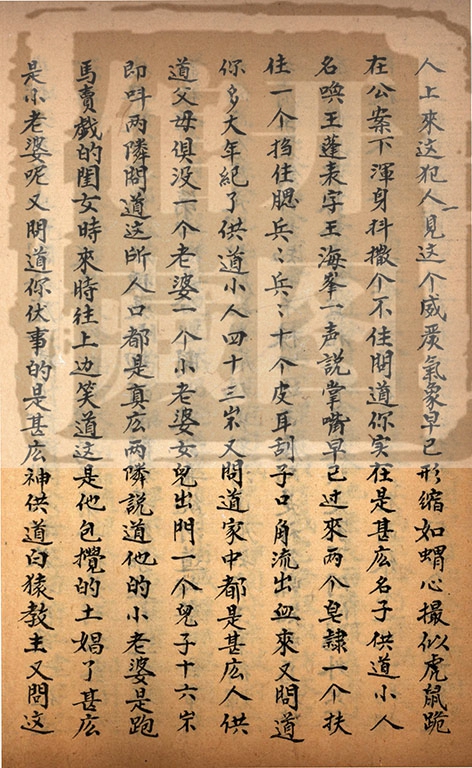 人上來这犯人一見这个威嚴氣象早已形缩如蝟心撮似虎鼠跪
在公案下渾身抖撒个不住問道你实在是甚庅名子供道小人
名喚王蓬表字王海峯一声說掌嘴早已过來两个皂隸一个扶
住一个挡住腮兵〻兵〻十个皮耳刮子口角流出血來又問道
你多大年紀了供道小人四十三岁又問道家中都是甚庅人供
道父母俱没一个老婆一个小老婆女兒出門一个兒子十六岁
即呌两隣問道这所人口都是真庅两隣說道他的小老婆是跑
馬賣戲的闺女時來時往上边笑道这是他包攬的土娼了甚庅
是小老婆呢又問道你伏事的是甚庅神供道白猿教主又問这